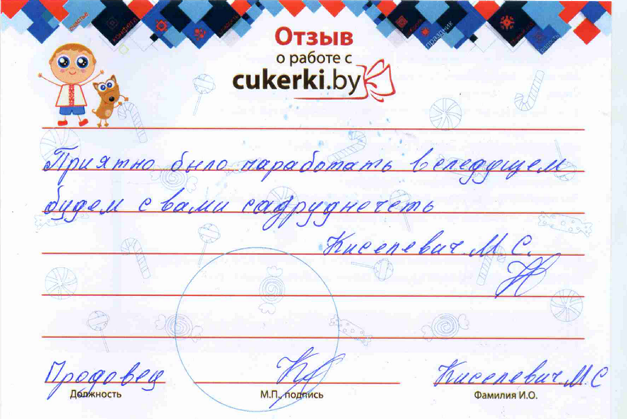 Отзыв
о работе с
cukerki.by
Приятно было чаработать веледущем
будем с вами садруднечеть
Киселевич М. С.
Продовец Киселевич М.С
Должность М.П., подпись Фамилия И.О.